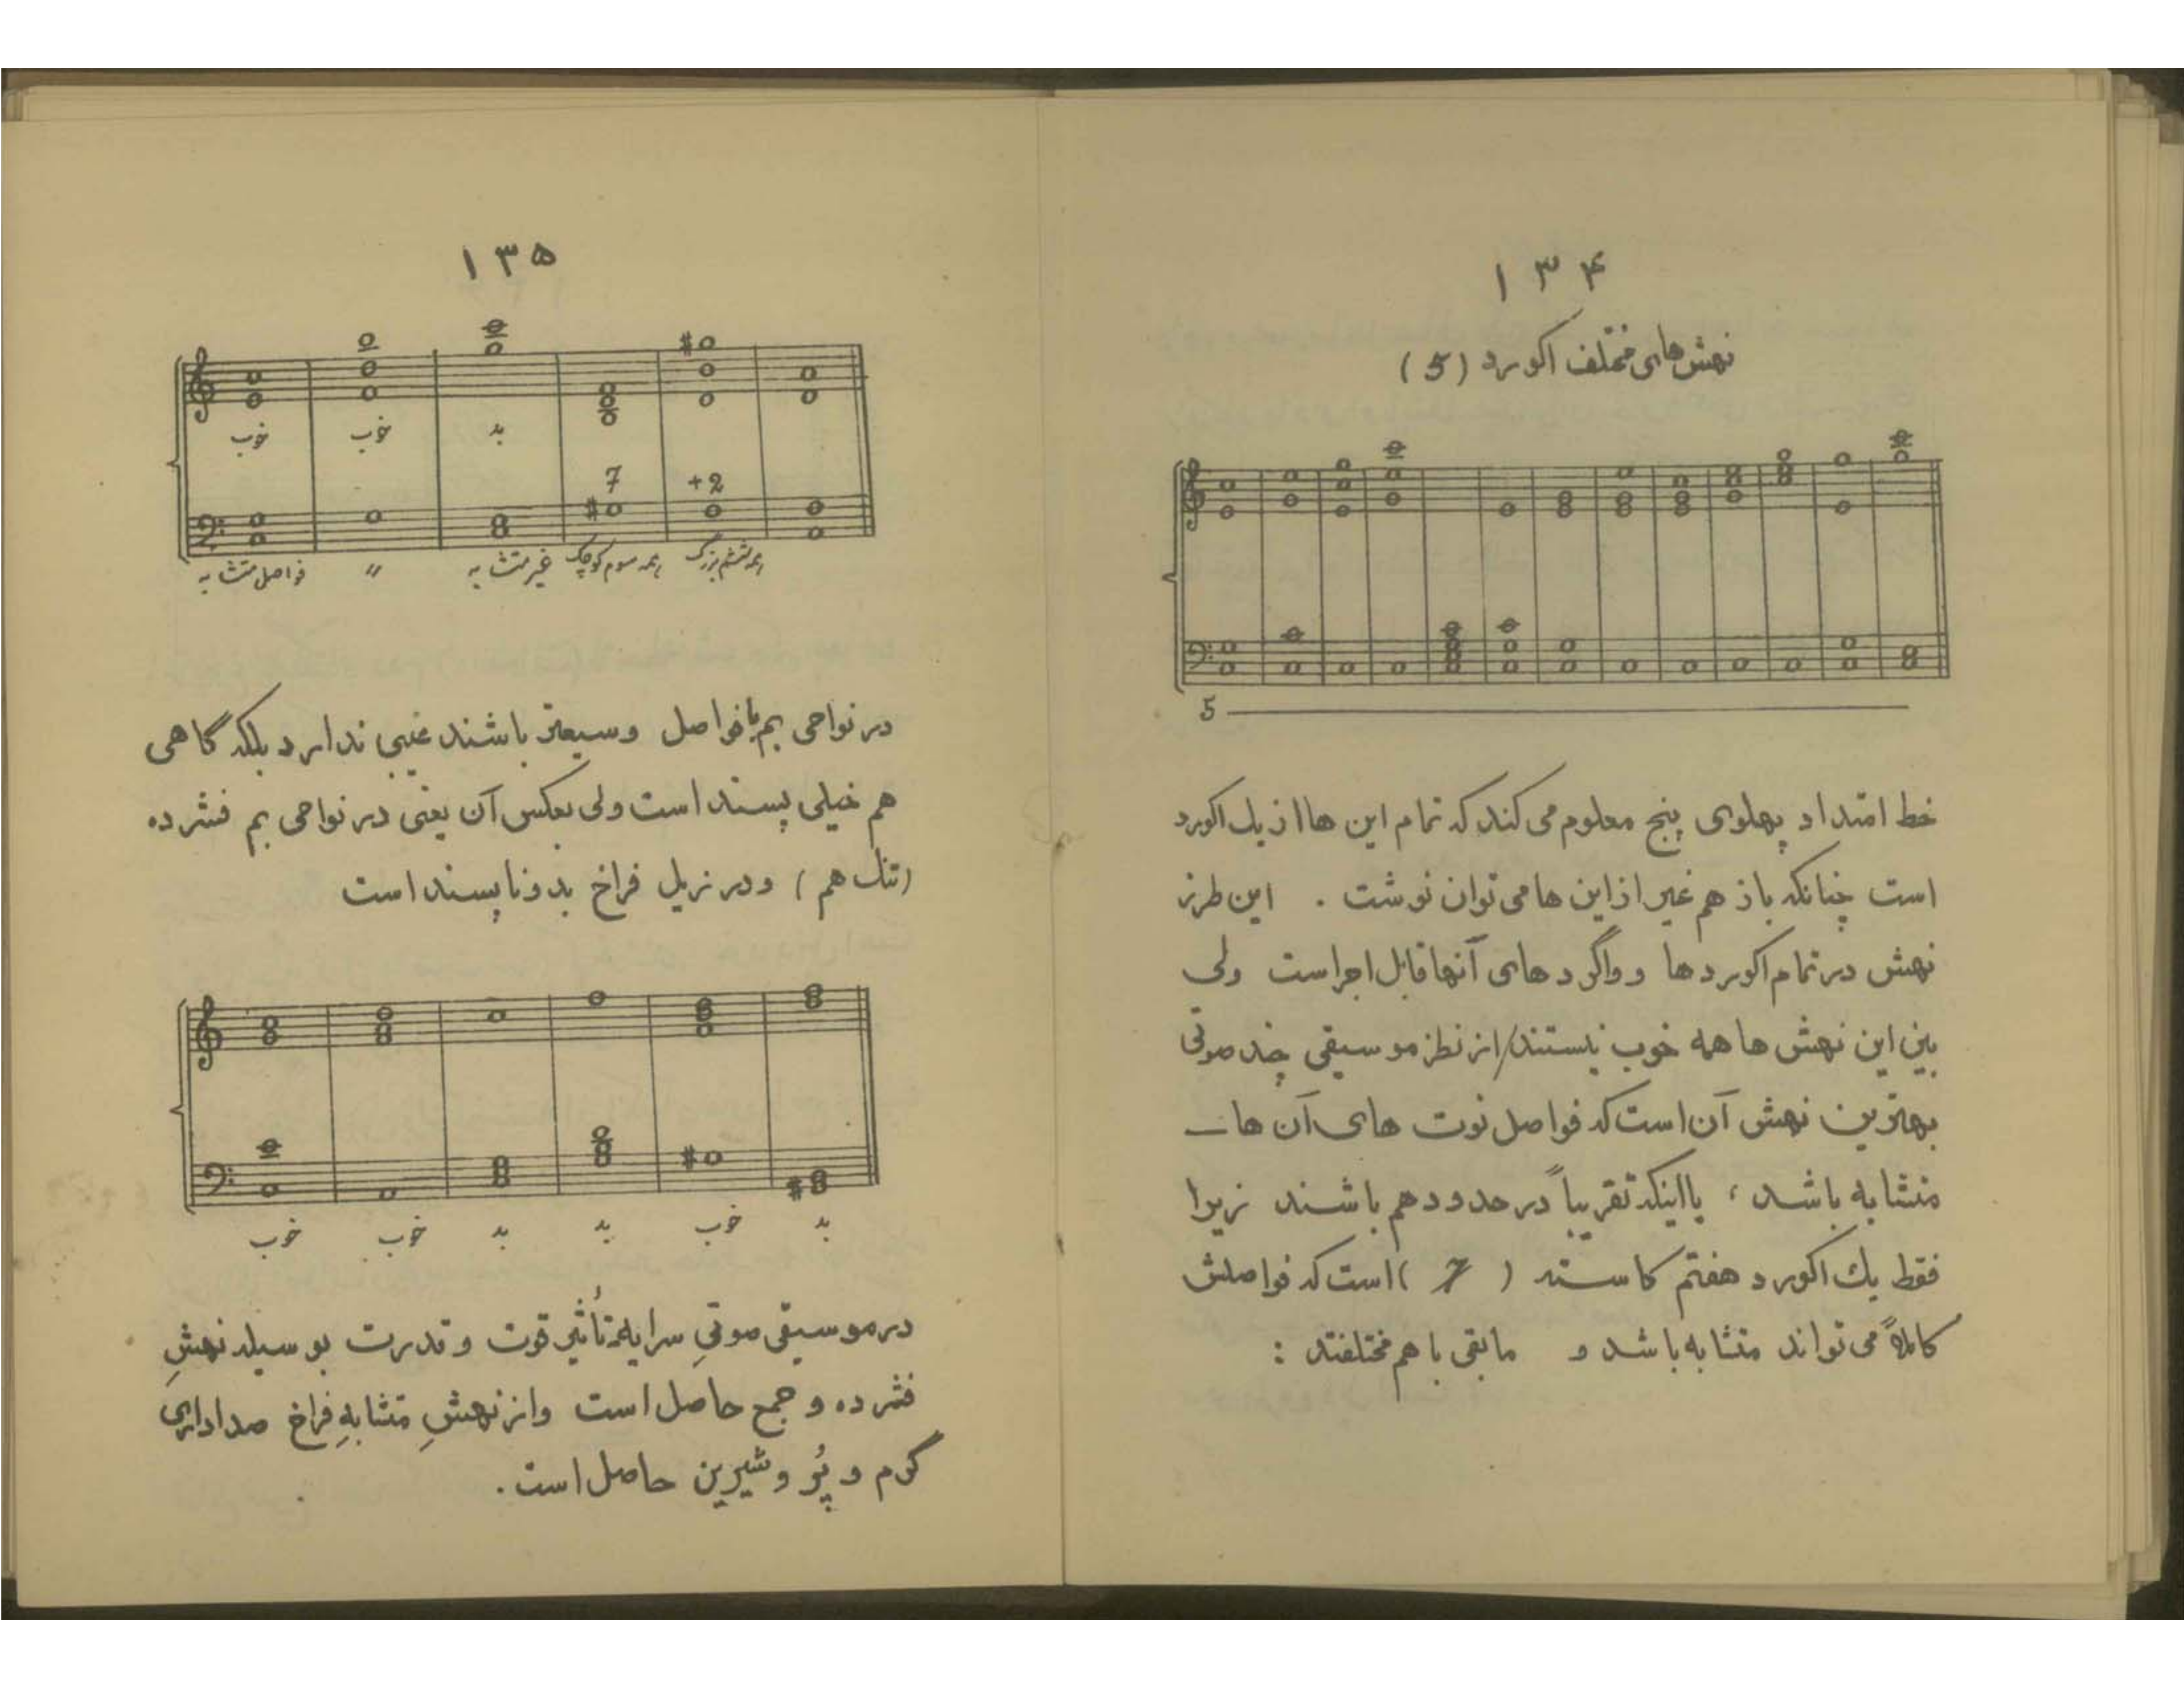 ۱۳۴
نهش‌های مختلف اکورد (5)
5
خط امتداد پهلوی پنج معلوم می کند که تمام این ها از یک اکورد
است چنانکه باز هم غیر از این ها می توان نوشت . این طرز
نهش در تمام اکوردها و واگردهای آنها قابل اجراست ولی
بین این نهش ها همه خوب نیستند/از نظر موسیقی چند صوتی
بهترین نهش آن است که فواصل نوت های آن ها
متشابه باشد، یا اینکه تقریباً در حدود هم باشند زیرا
فقط یک اکورد هفتم کاسته ( 7 ) است که فواصلش
کاملاً می تواند متشابه باشد و مابقی با هم مختلفند :
۱۳۵
خوب خوب بد 7 +2
فواصل متشابه " غیر متشابه همه سوم کوچک همه ششم بزرگ
در نواحی بم با فواصل وسیعتر باشند عیبی ندارد بلکه گاهی
هم خیلی پسند است ولی بعکس آن یعنی در نواحی بم فشرده
(تنگ هم) و در زیل فراخ بد و ناپسند است
خوب خوب بد بد خوب بد
در موسیقی صوتیِ سرایه تأثیر قوت و قدرت بوسیله نهشِ
فشرده و جمع حاصل است و از نهشِ متشابهِ فراخ صدادارای
گرم و پُر و شیرین حاصل است.